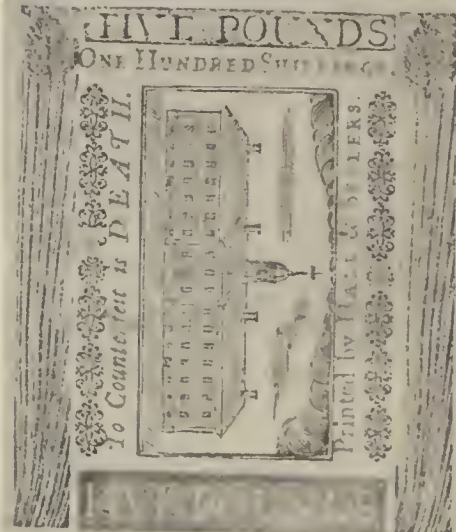 FIVE POUNDS
ONE HUNDRED SHILLINGS.
To Counterfeit is DEATH.
Printed by HALL & SELLERS.
FIVE POUNDS